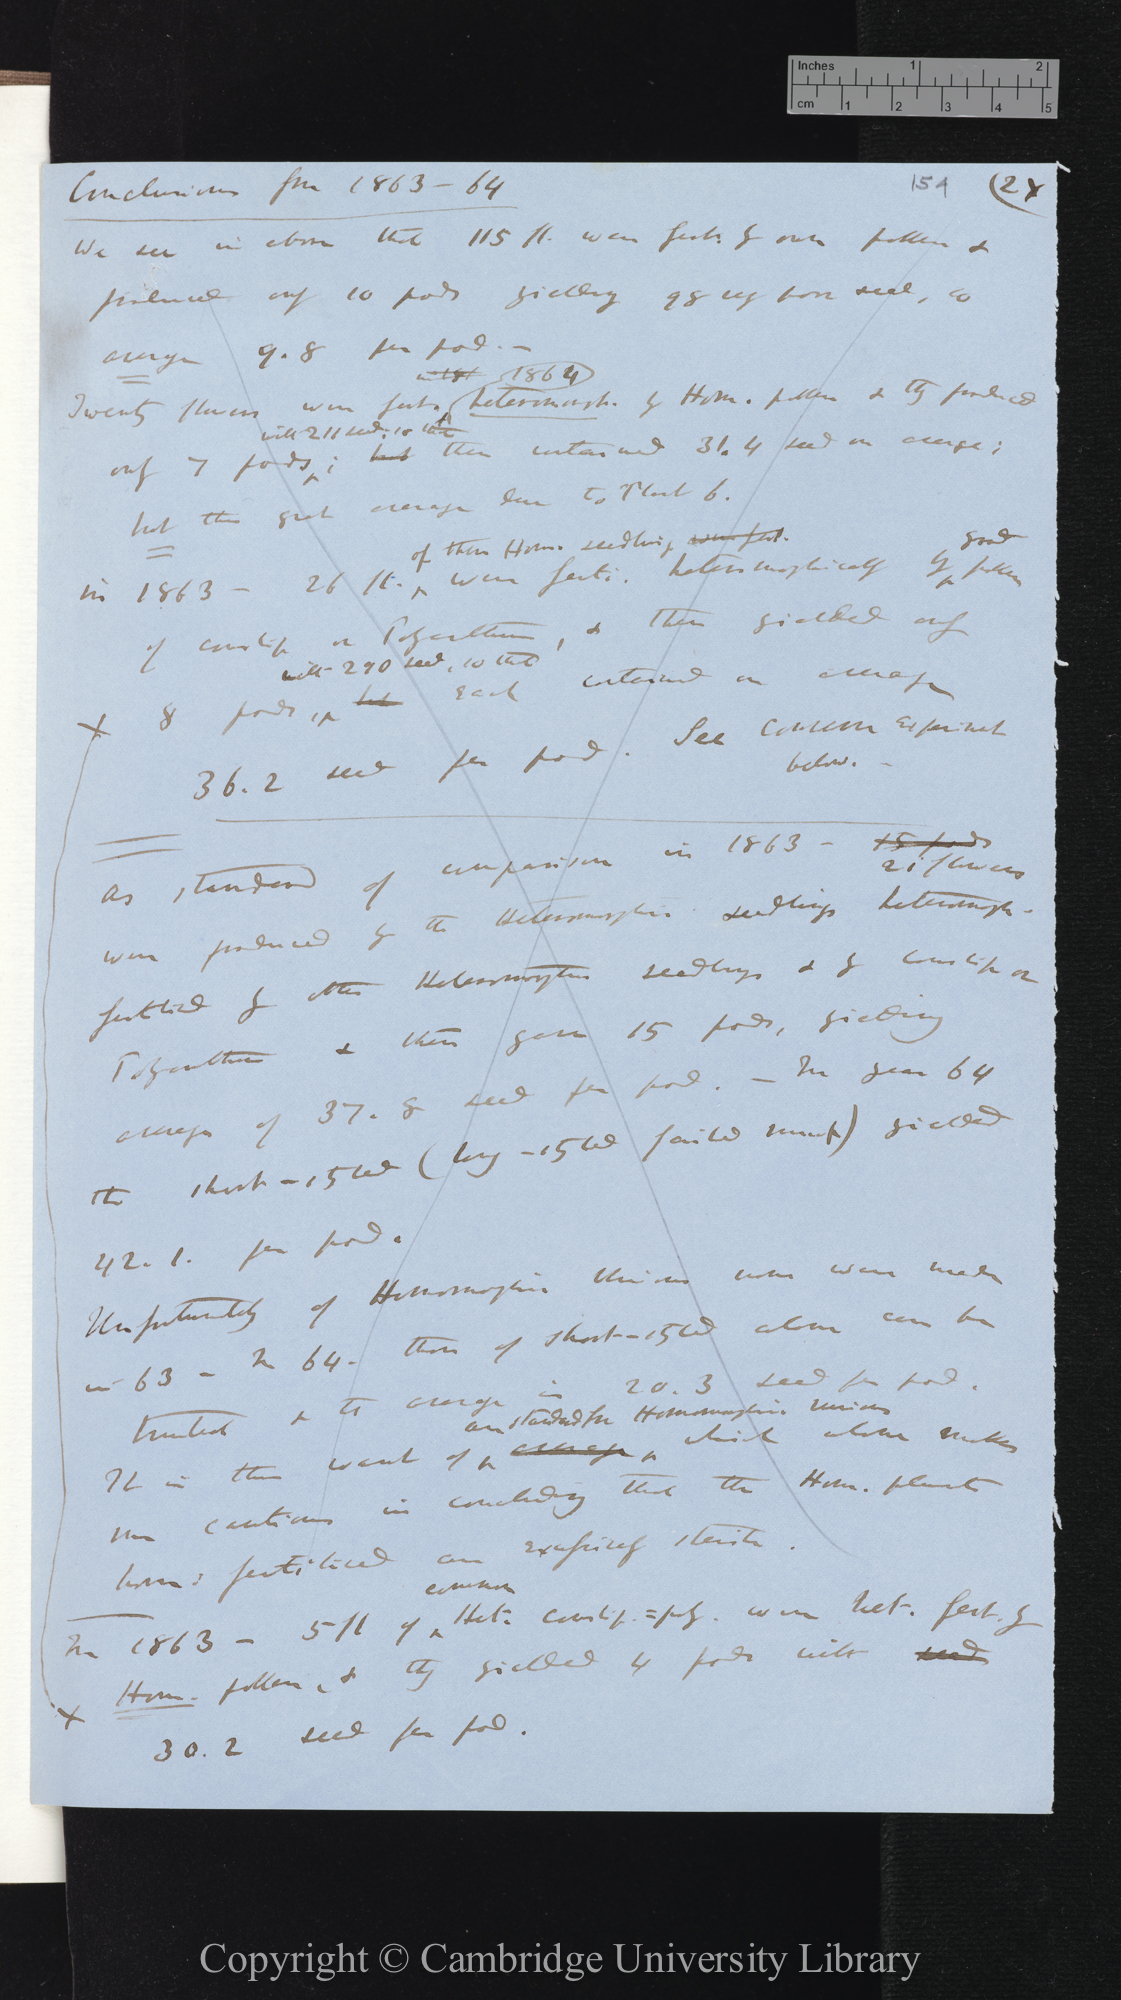 Inches 1 2
cm 1 2 3 4 5
Conclusions from 1863-64
154 (2
We see in above that 115 fl. were fert. by own pollen &
produced only 10 pods yielding 98 very poor seed, so
average 9.8 per pod. —
1864
Twenty flowers were fert. heteromorph. by Hom. pollen & they produced
with 211 seed, so that
only 7 pods; but then contained 31.4 seed on average;
but this great average due to Plant 6.
of these Homo seedlings were fert. good
in 1863 — 26 fl. were ferti. heteromorphically by pollen
of cowslip or Polyanthus, & these yielded only
with 290 seed, so that
8 pods, but each contained on average
36.2 seed per pod. See converse experiment
below. —
As standard of comparison in 1863 — 15 pods
21 flowers
were produced by the Heteromorphic seedlings heteromorph.
fertilised by other Heteromorphic seedlings & by cowslip or
Polyanthus & these gave 15 pods, yielding
average of 37.8 seed per pod. — In year 64
the short-styled (long-styled failed much) yielded
42.1. per pod.
Unfortunately of Homomorphic Unions none were made
in 63 — In 64. those of short-styled alone can be
trusted & the average is 20.3 seed per pod.
an standard for Homomorphic unions
It is this want of average, which alone makes
me cautious in concluding that the Hom. plants
homo: fertilised are excessively sterile.
common
In 1863 — 5 fl of Het: cowslip = poly. were het. fert. by
Hom. pollen, & they yielded 4 pods with seed
30.2 seed per pod.
Copyright © Cambridge University Library